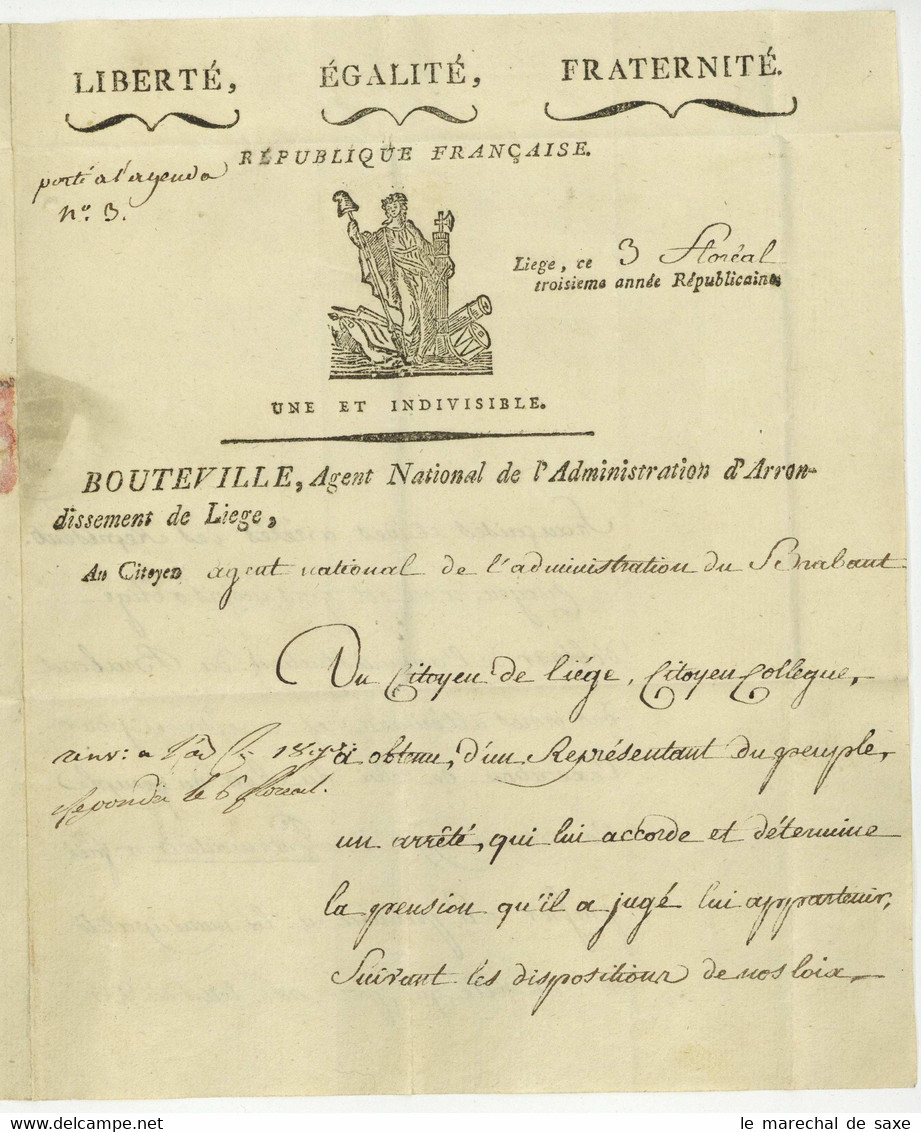 LIBERTÉ, ÉGALITÉ, FRATERNITÉ.
RÉPUBLIQUE FRANÇAISE.
porté a l'agenda
n.º 3.
Liege, ce 3 floréal
troisieme année Républicaine
UNE ET INDIVISIBLE.
BOUTEVILLE, Agent National de l'Administration d'Arron-
dissement de Liege,
Au Citoyen agent national de l'administration du Brabant
Un Citoyen de Liége, Citoyen Collegue,
a obtenu, d'un Représentant du peuple,
repondu le 6 floreal.
un arrêté, qui lui accorde et détermine
la pension qu'il a jugé lui appartenir,
Suivant les dispositions de nos loix,
le marechal de saxe